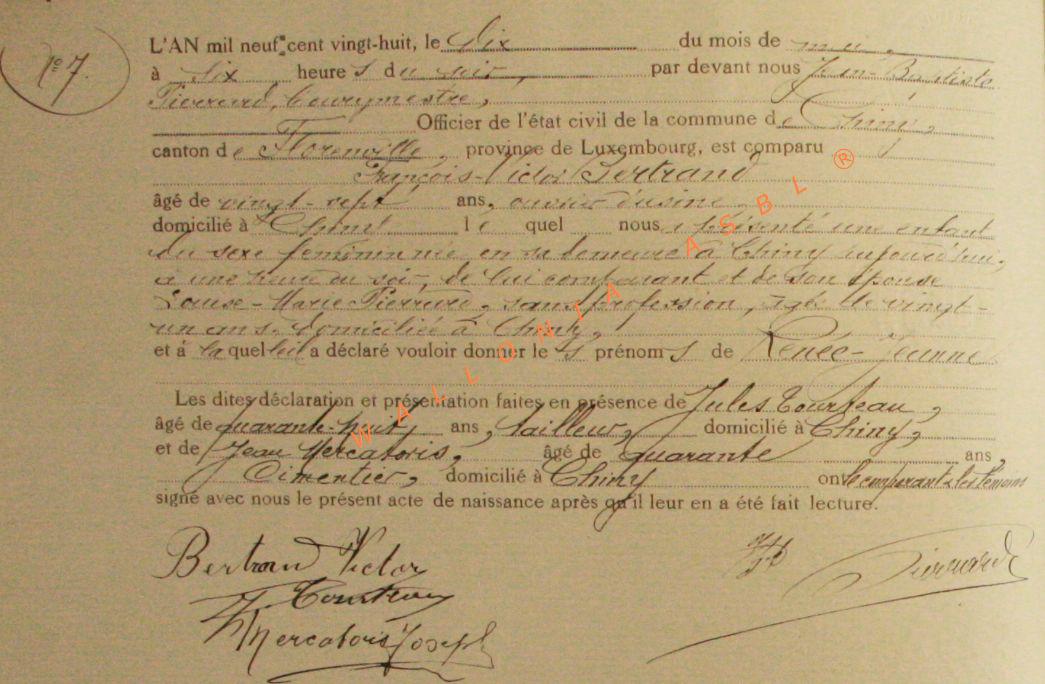 No 7.
L'AN mil neuf cent vingt-huit, le dix du mois de mai,
à six heure s du soir, par devant nous Jean-Baptiste
Pierrard, bourgmestre,
Officier de l'état civil de la commune de Chiny,
canton de Florenville, province de Luxembourg, est comparu
François-Victor Bertrand
âgé de vingt-sept ans, ouvrier d'usine,
domicilié à Chiny le quel nous a présenté une enfant
du sexe féminin née en sa demeure à Chiny aujourd'hui,
à une heure du soir, de lui comparant et de son épouse
Louise-Marie Pierrard, sans profession, âgée de vingt-
un ans, domiciliée à Chiny,
et à la quelle il a déclaré vouloir donner le s prénom s de Renée-Jeanne
Les dites déclaration et présentation faites en présence de Jules Tourteau,
âgé de quarante-huit ans, tailleur, domicilié à Chiny,
et de Jean Mercatoris, âgé de quarante ans,
Cimentier, domicilié à Chiny ont le comparant & les témoins
signé avec nous le présent acte de naissance après qu'il leur en a été fait lecture.
Bertrand Victor Pierrard
Tourteau
Mercatoris Joseph
WALLONIA ASBL ®